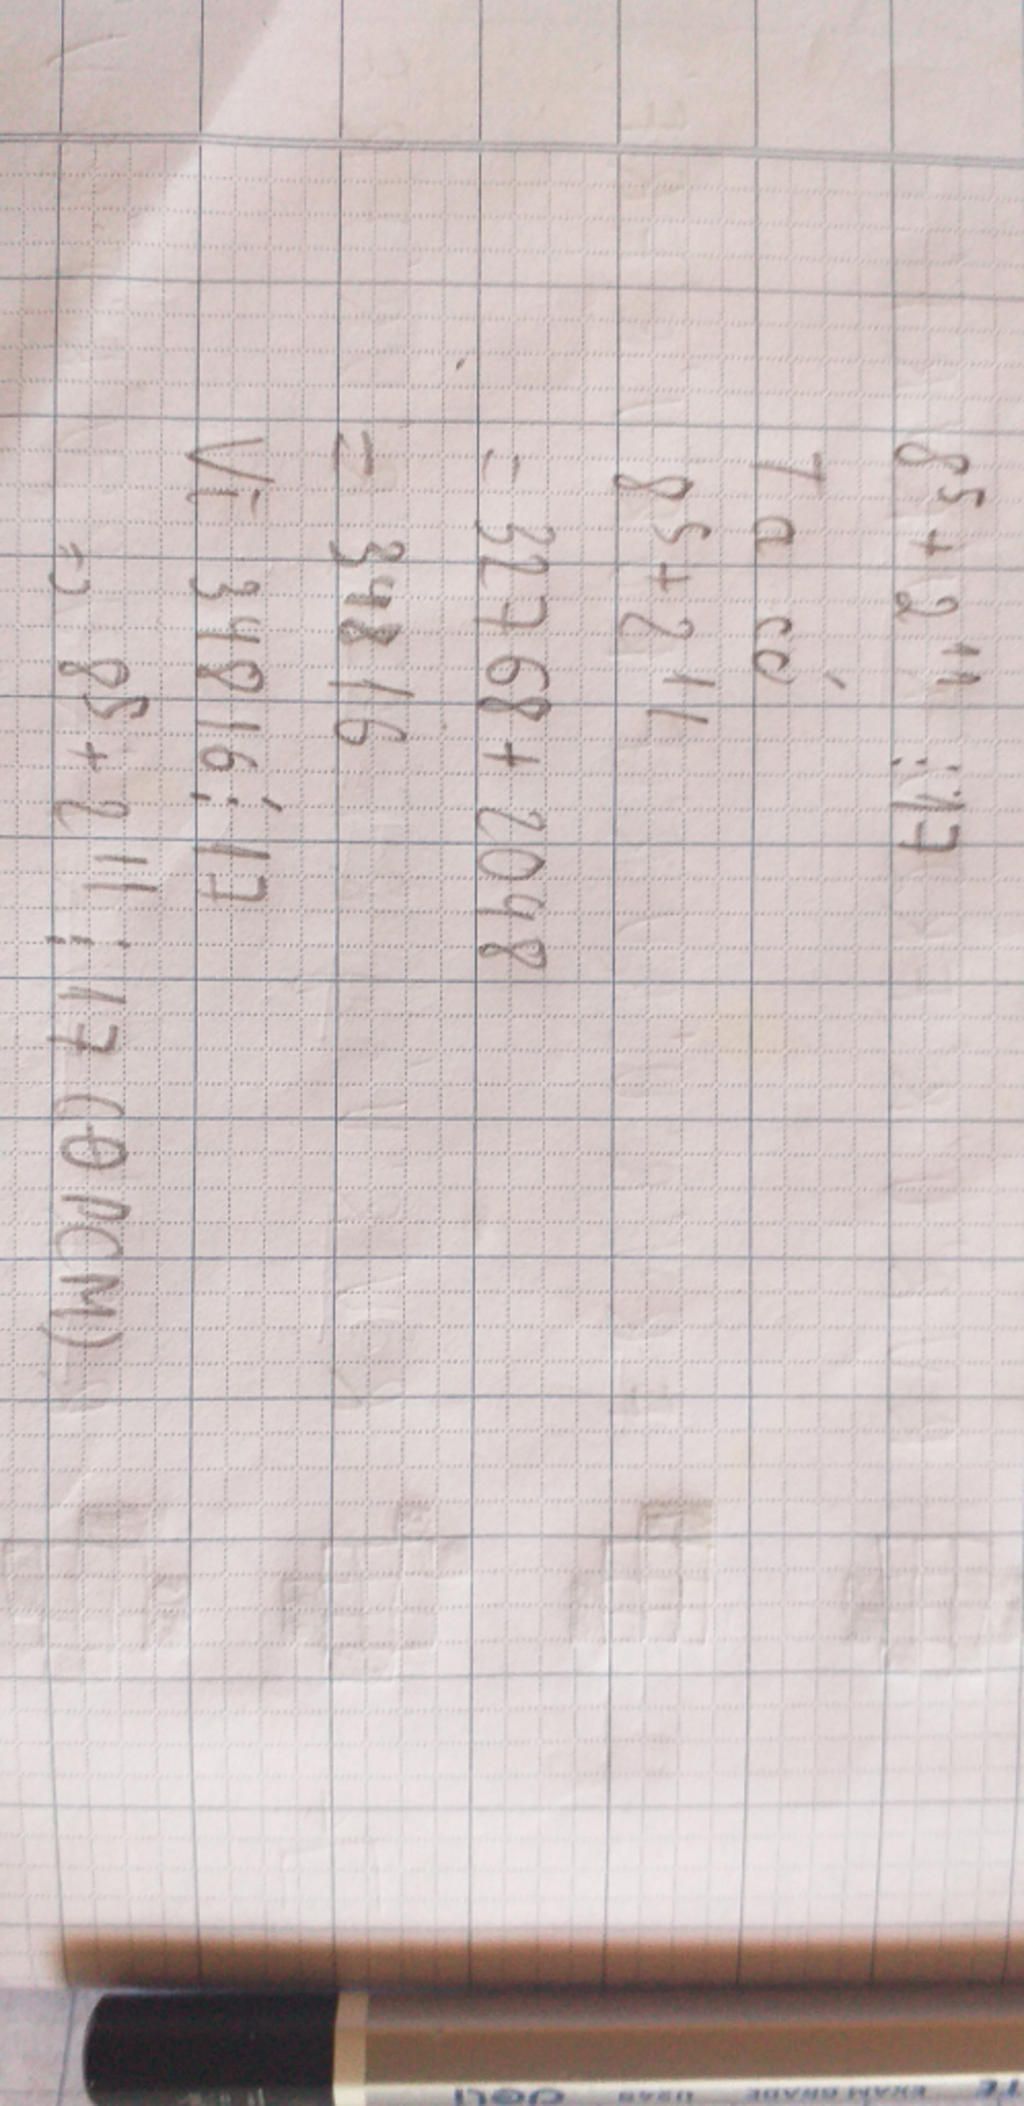 8⁵ + 2¹¹ ⋮ 17
Ta có
8⁵ + 2¹¹
= 32768 + 2048
= 34816
Vì 34816 ⋮ 17
=> 8⁵ + 2¹¹ ⋮ 17 (ĐPCM)
deli
EXAM GRADE